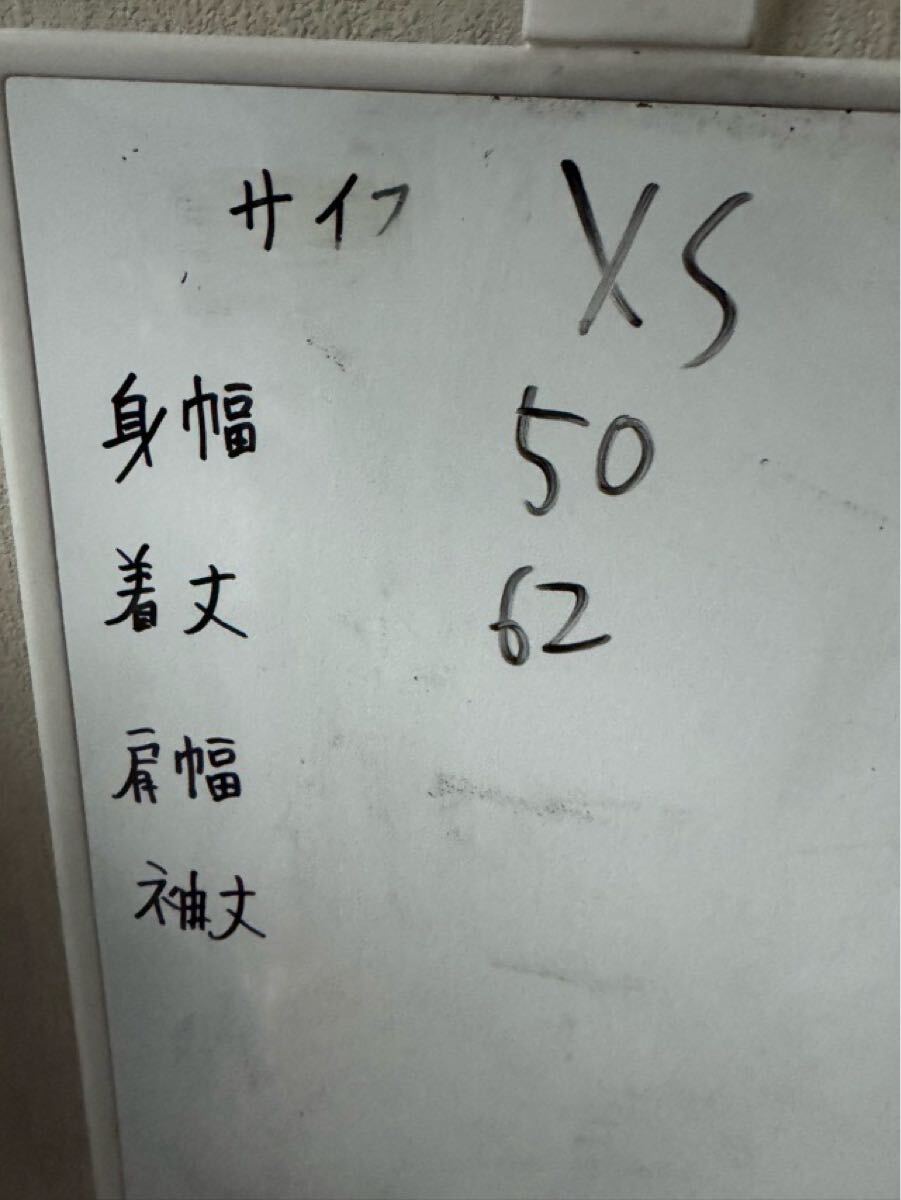 サイフ XS
身幅 50
着丈 62
肩幅
袖丈